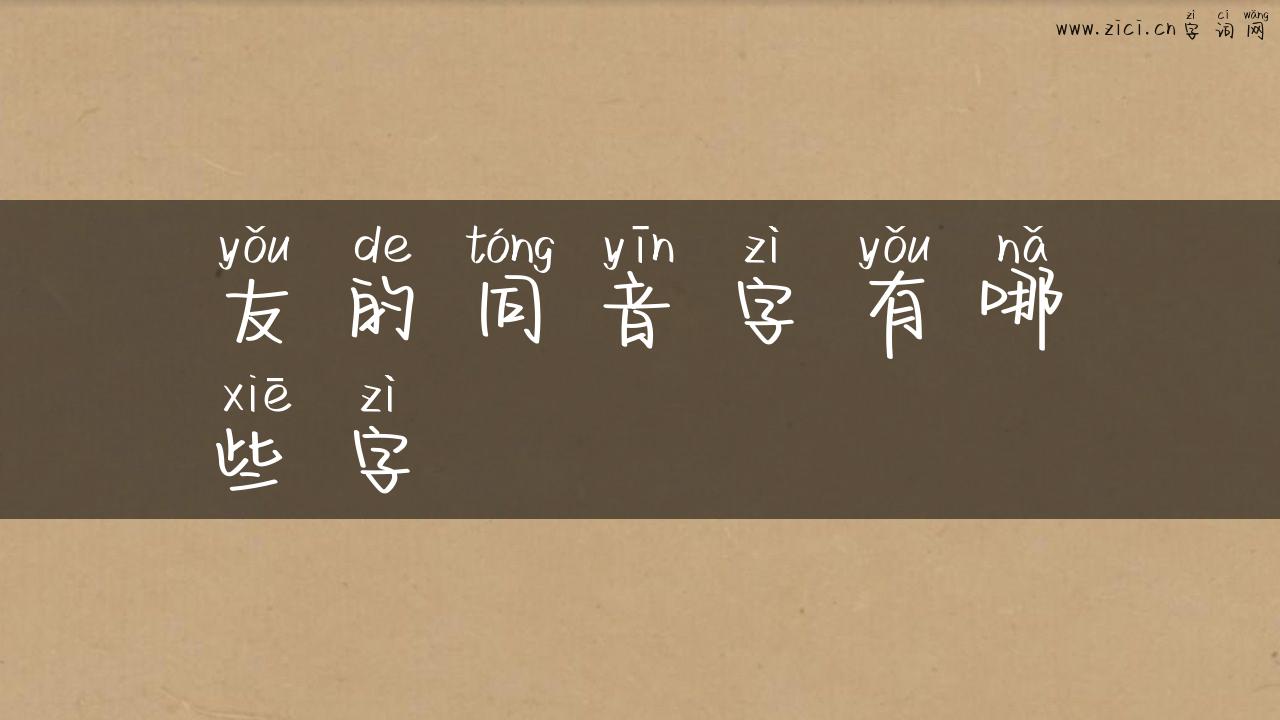 zì cí wǎng
www.zici.cn 字词网
yǒu de tóng yīn zì yǒu nǎ
友的同音字有哪
xiē zì
些字